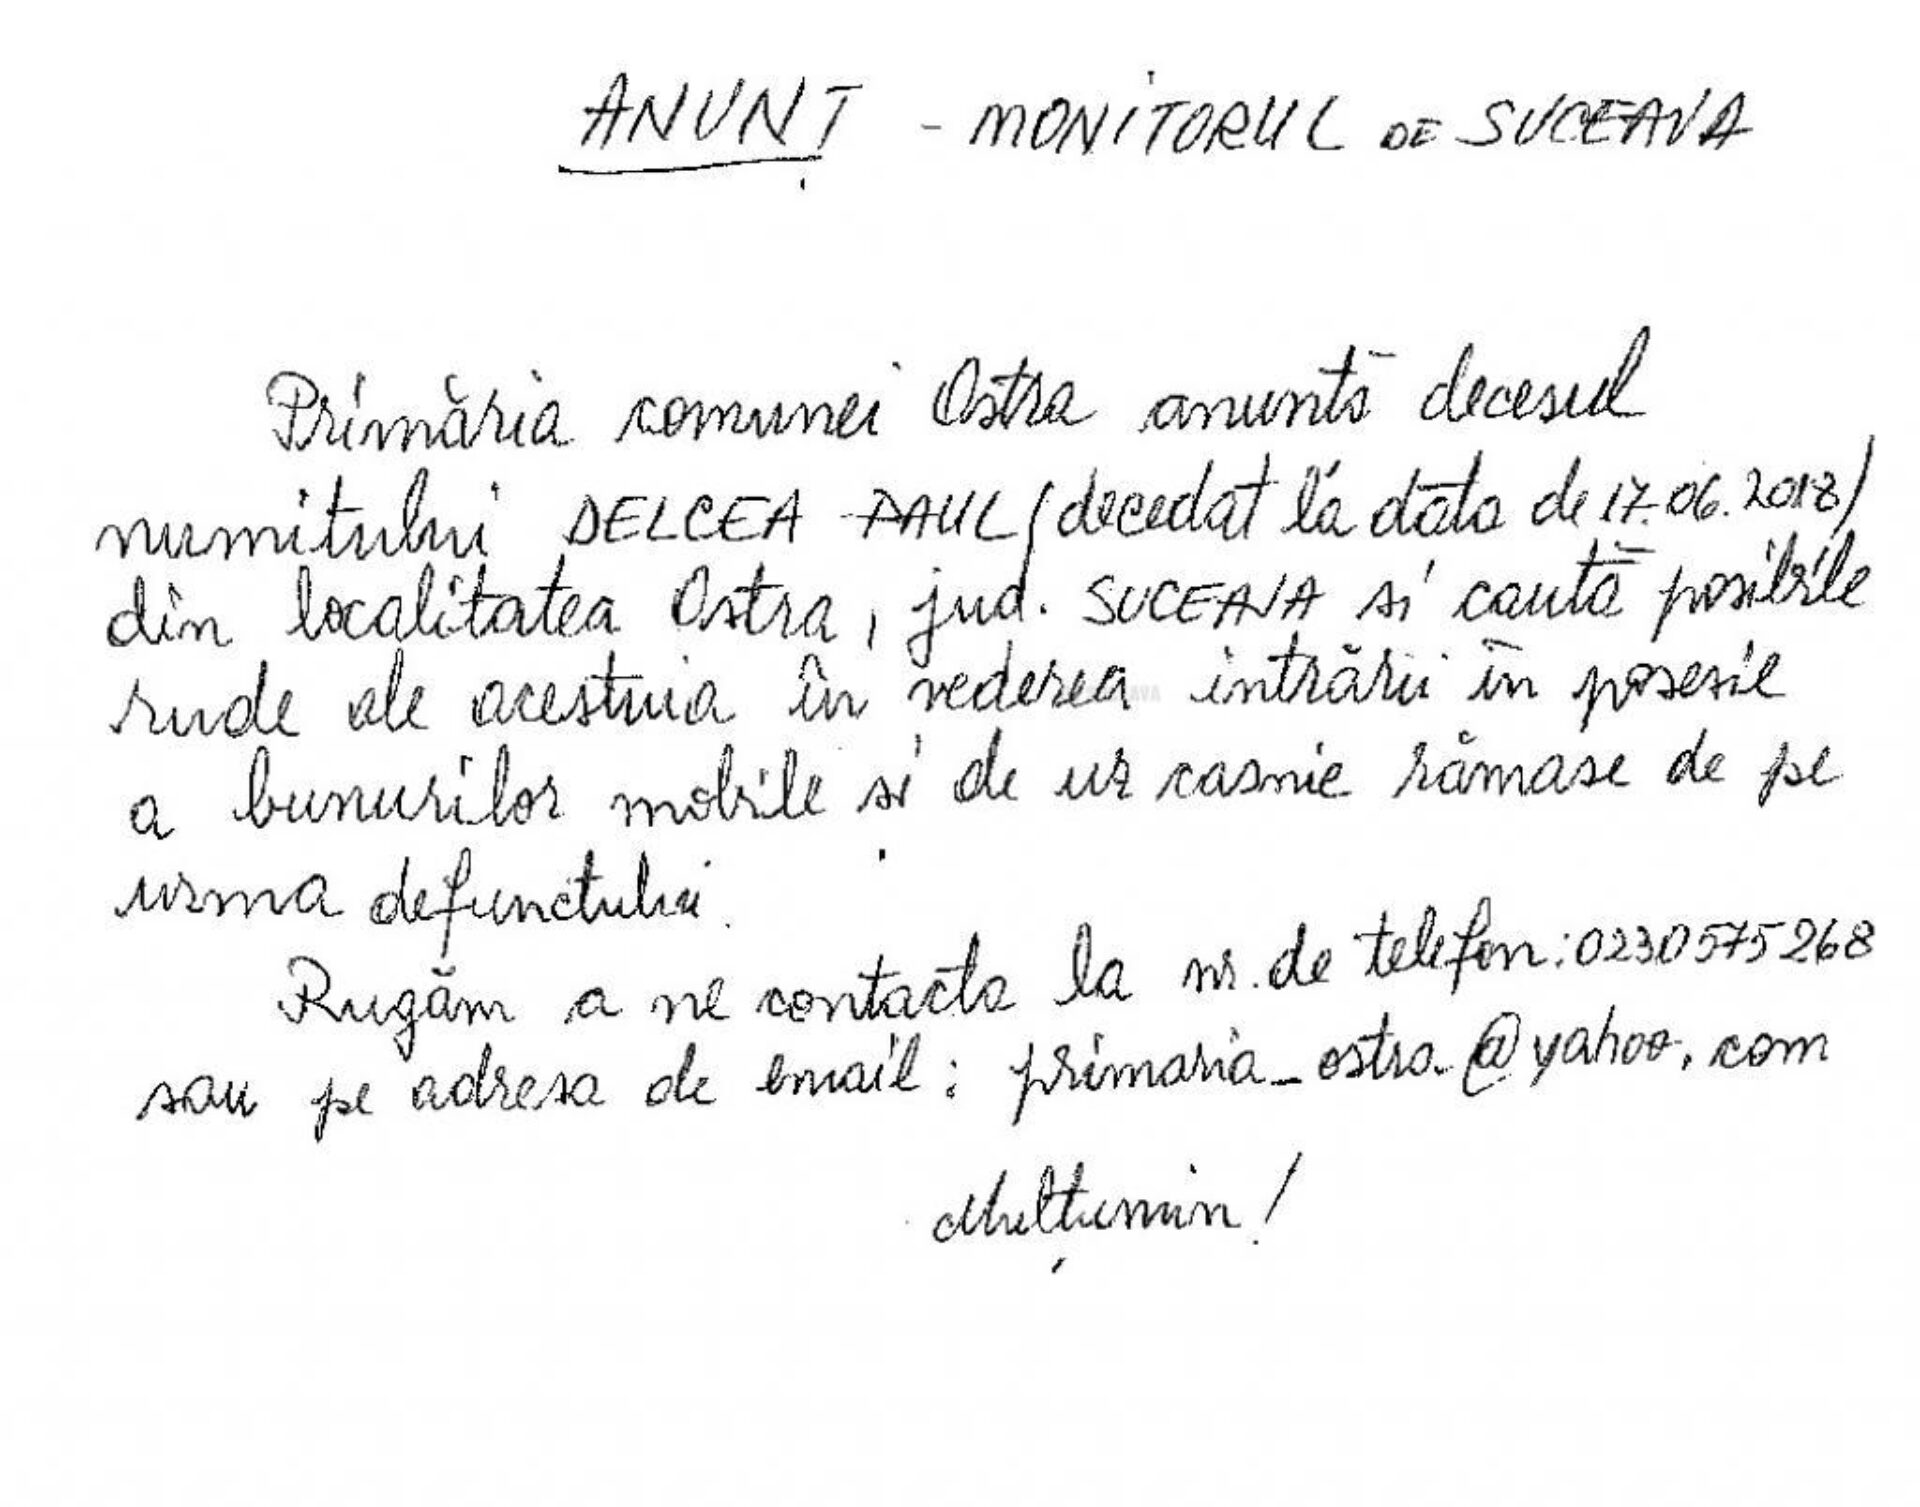 ANUNȚ - MONITORUL DE SUCEAVA
Primăria comunei Ostra anuntă decesul
numitului DELCEA PAUL (decedat la data de 17.06.2018)
din localitatea Ostra, jud. SUCEAVA si caută posibile
rude ale acestuia în vederea intrării în posesie
a bunurilor mobile si de uz casnic rămase de pe
urma defunctului.
Rugăm a ne contacta la nr. de telefon: 0230575268
sau pe adresa de email: primaria_ostra@yahoo.com
Mulțumim!